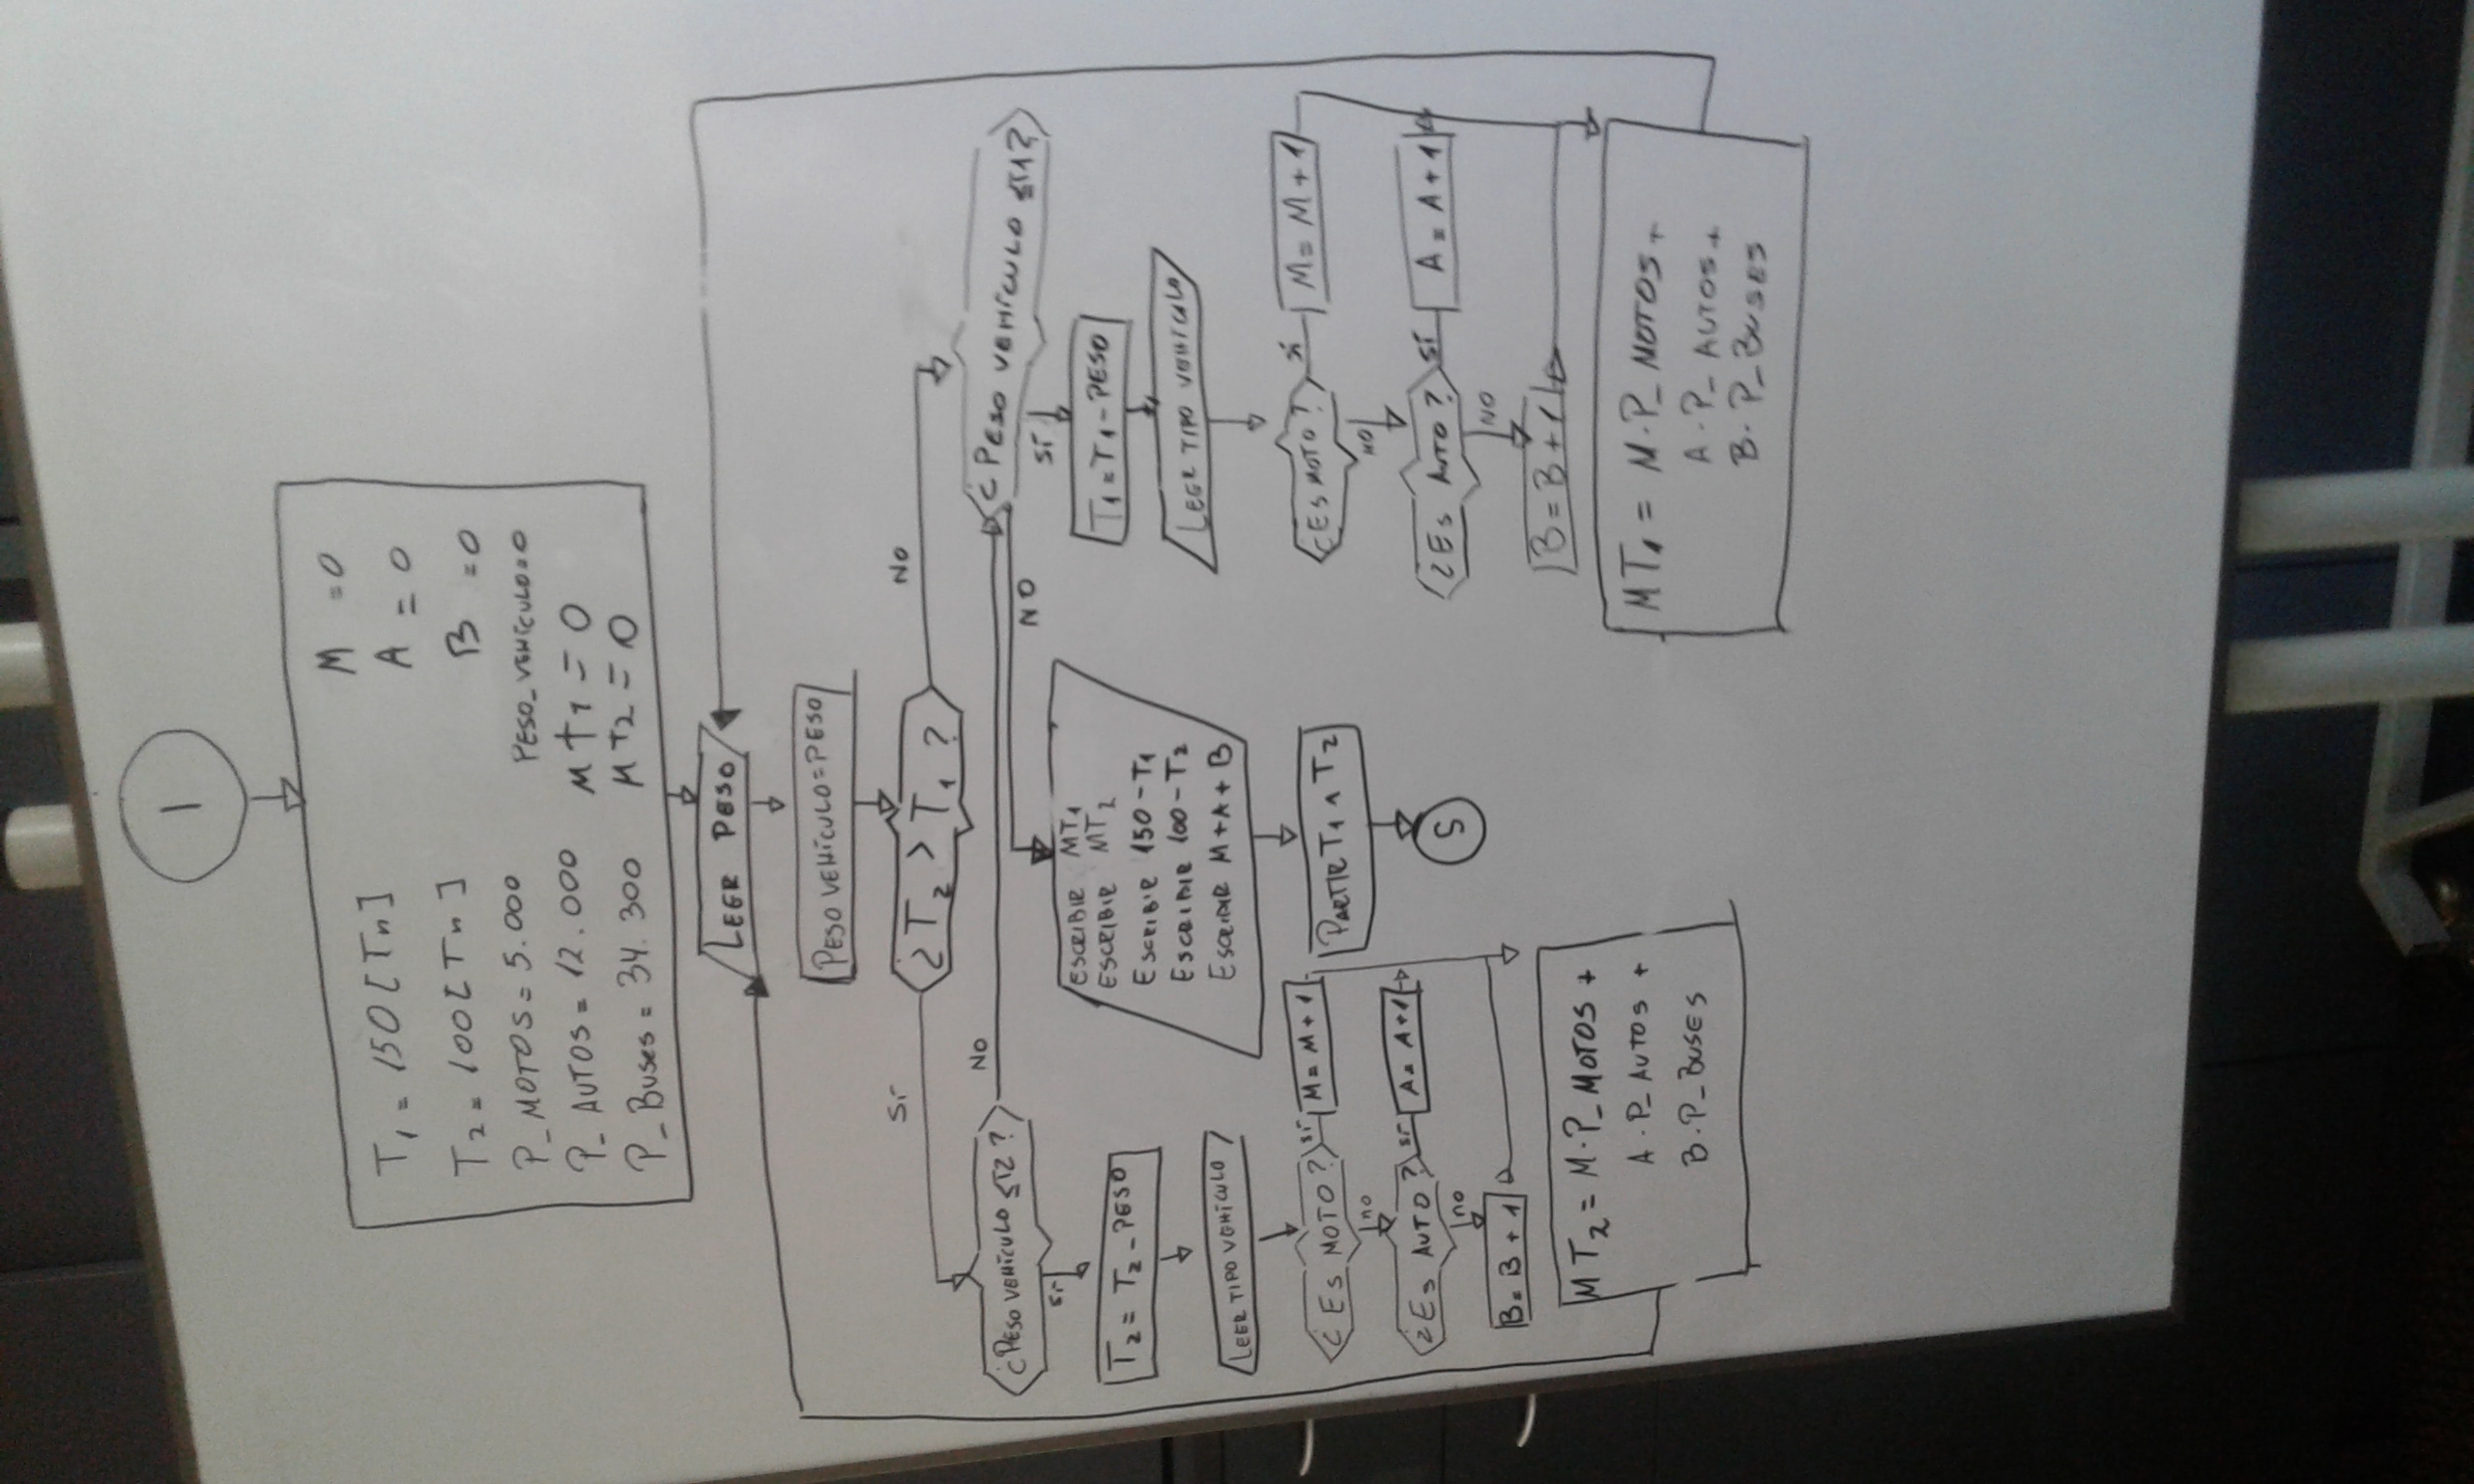 I
T1 = 150 [Tn]
T2 = 100 [Tn]
P_MOTOS = 5.000
P_AUTOS = 12.000
P_Buses = 34.300
M = 0
A = 0
B = 0
PESO_VEHÍCULO = 0
MT1 = 0
MT2 = 0
LEER PESO
PESO VEHÍCULO = PESO
¿T2 > T1?
SÍ
NO
¿PESO VEHÍCULO ≤T2?
NO
¿PESO VEHÍCULO ≤T1?
NO
SÍ
SÍ
T2 = T2 - PESO
LEER TIPO VEHÍCULO
¿ES MOTO?
SÍ
M = M + 1
no
¿ES AUTO?
SÍ
A = A + 1
no
B = B + 1
MT2 = M·P_MOTOS +
A·P_AUTOS +
B·P_BUSES
ESCRIBIR MT1
ESCRIBIR MT2
ESCRIBIR 150 - T1
ESCRIBIR 100 - T2
ESCRIBIR M + A + B
PARTIR T1 ∧ T2
S
T1 = T1 - PESO
LEER TIPO VEHÍCULO
¿ES MOTO?
SÍ
M = M + 1
NO
¿ES AUTO?
SÍ
A = A + 1
NO
B = B + 1
MT1 = M·P_MOTOS +
A·P_AUTOS +
B·P_BUSES